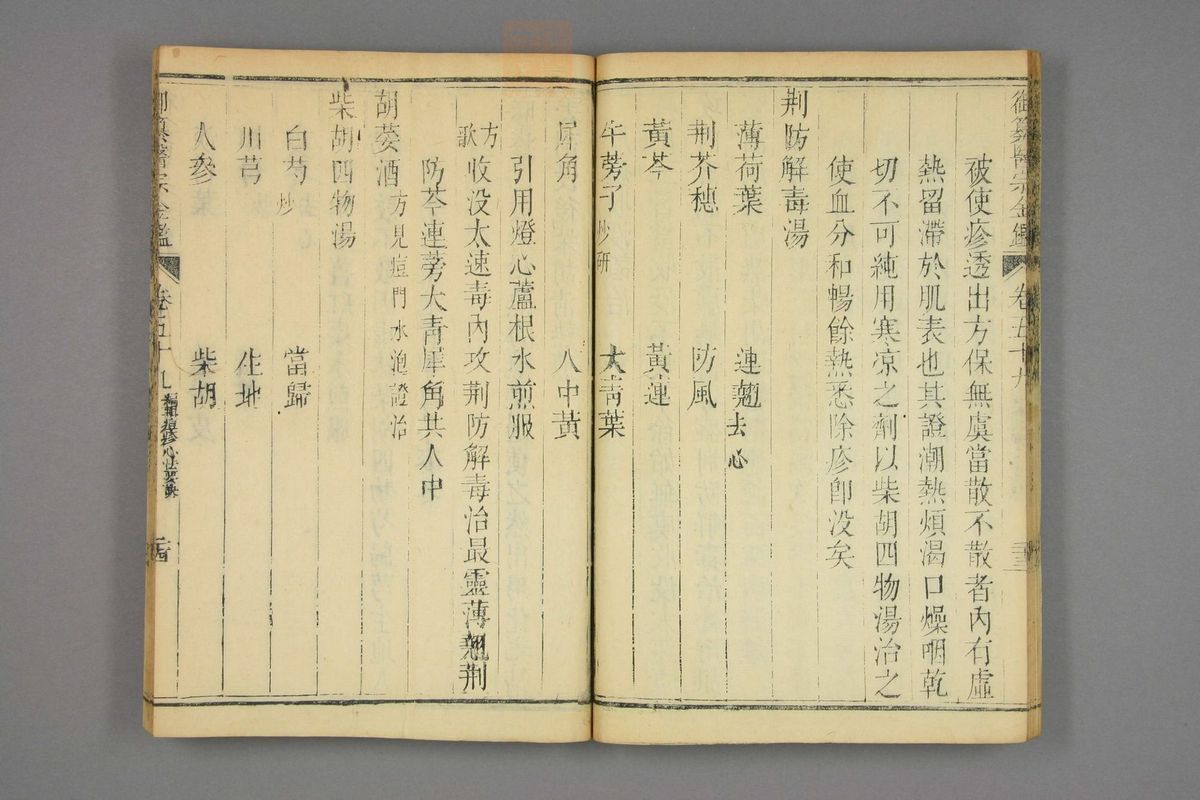 御纂醫宗金鑑 卷五十九 二十三
被使疹透出方保無虞當散不散者內有虛
熱留滯於肌表也其證潮熱煩渴口燥咽乾
切不可純用寒凉之劑以柴胡四物湯治之
使血分和暢餘熱悉除疹卽没矣
荆防解毒湯
薄荷葉 連翹去心
荆芥穗 防風
黃芩 黃連
牛蒡子炒研 大青葉
犀角 人中黃
引用燈心蘆根水煎服
方歌 收没太速毒內攻荆防解毒治最靈薄翹荆
防芩連蒡大青犀角共人中
胡荽酒 方見痘門水泡證治
柴胡四物湯
白芍炒 當歸
川芎 生地
人參 柴胡
御纂醫宗金鑑 卷五十九 編輯痘疹心法要訣 二十四